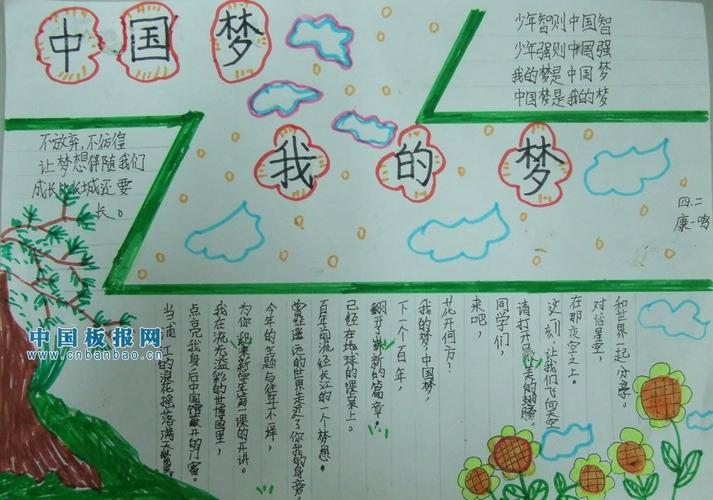 中国梦
少年智则中国智
少年强则中国强
我的梦是中国梦
中国梦是我的梦
我的梦
不放弃,不彷徨
让梦想伴随我们
成长比长城还要
长。
四.二
康一鸣
当浦江的浪花摇落满天繁星
点亮我身后中国馆敞开的门窗。
我在流光溢彩的世博园里,
为你迎来新学年第一课的开讲。
今年的主题与往年不一样,
曾经遥远的世界走进了你我的身旁
百年前流经长江的一个梦想。
已经在地球的课桌上。
翻开了崭新的篇章,
下一个百年,
我的梦,中国梦,
花开何方?
来吧,
同学们,
请打开最美的翅膀。
这一刻,让我们飞向天空
在那夜空之上。
对话星空,
和世界一起分享。
中国板报网
www.cnbanbao.cn